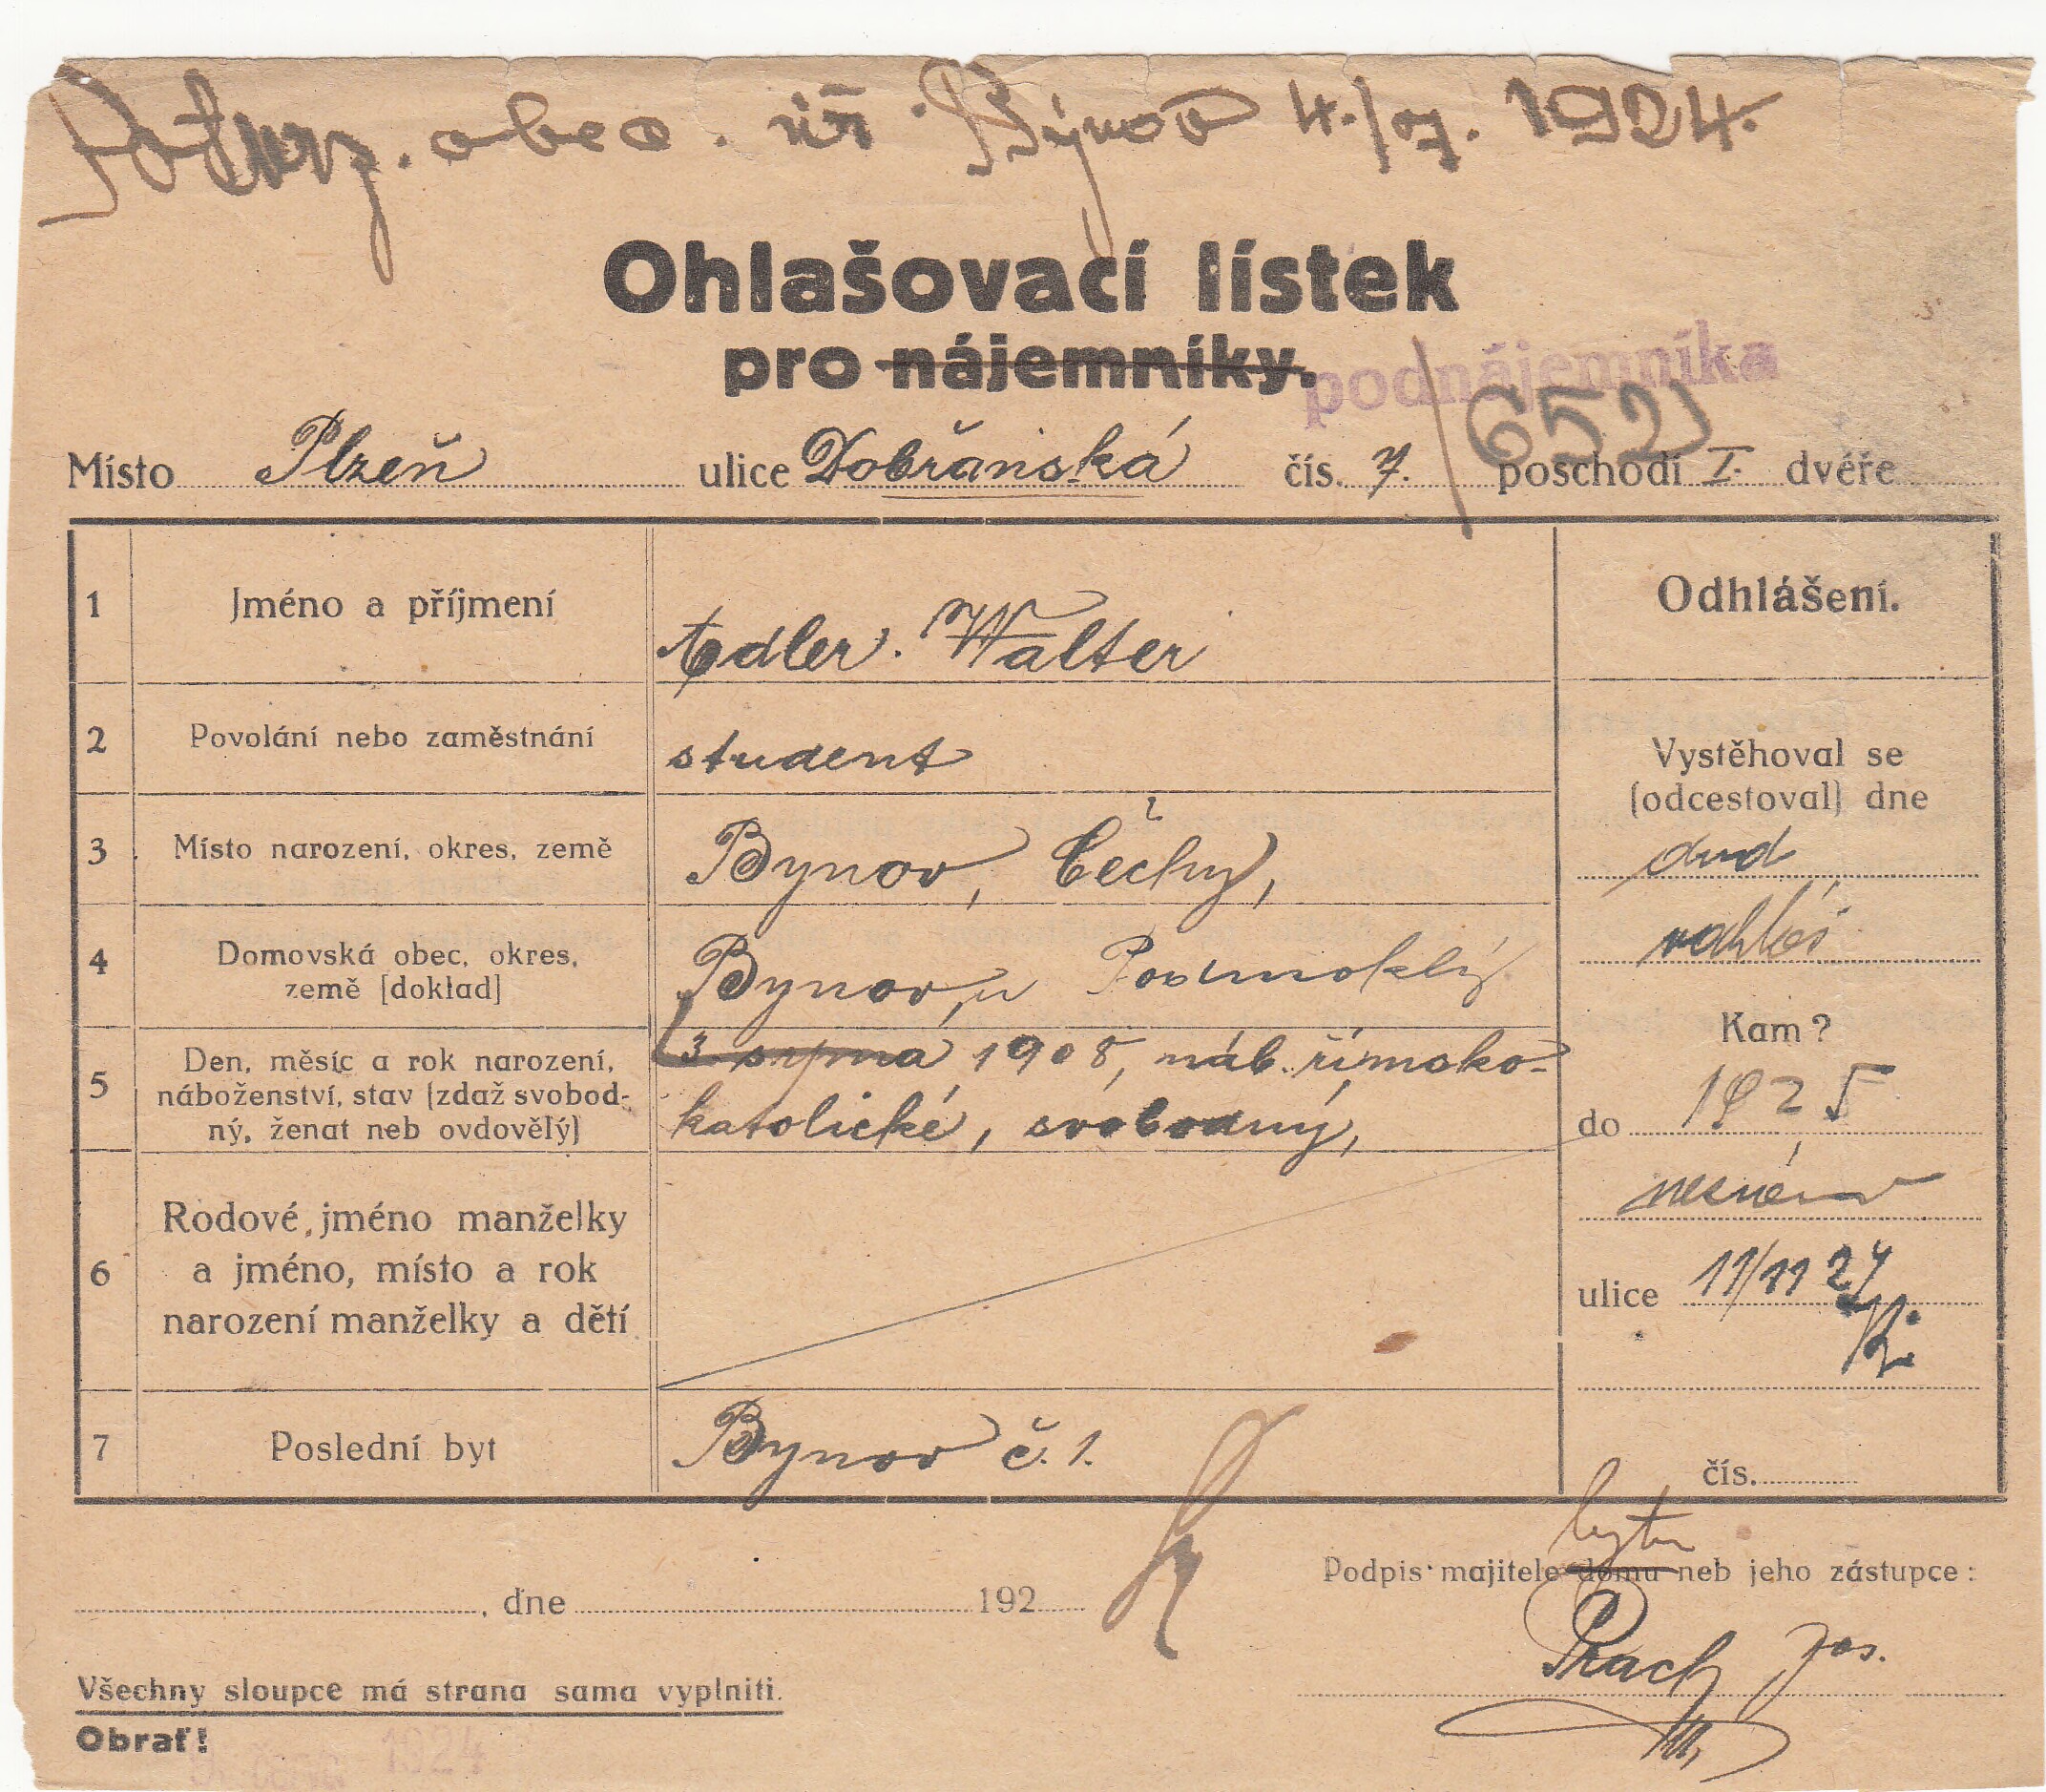 Potvrz. obec. úř. Býnov 4./7. 1924.
Ohlašovací lístek
pro nájemníky. podnájemníka
652
Místo Plzeň ulice Dobřanská čís. 7. poschodí I. dvéře
1 Jméno a příjmení Adler. Walter
Odhlášení.
2 Povolání nebo zaměstnání student
Vystěhoval se
(odcestoval) dne
3 Místo narození, okres, země Bynov, Čechy,
4 Domovská obec, okres,
země [doklad] Bynov, u Podmoklý
Kam?
5 Den, měsíc a rok narození,
náboženství, stav (zdaž svobod-
ný, ženat neb ovdovělý)
3 srpna 1908, náb. římsko-
katolické, svobodný,
do 1925
6 Rodové jméno manželky
a jméno, místo a rok
narození manželky a dětí
ulice 11/11 24
7 Poslední byt Bynov č. 1.
čís.
bytu
Podpis majitele domu neb jeho zástupce:
, dne 192
Prach Jos.
Všechny sloupce má strana sama vyplniti.
Obrať!
1924